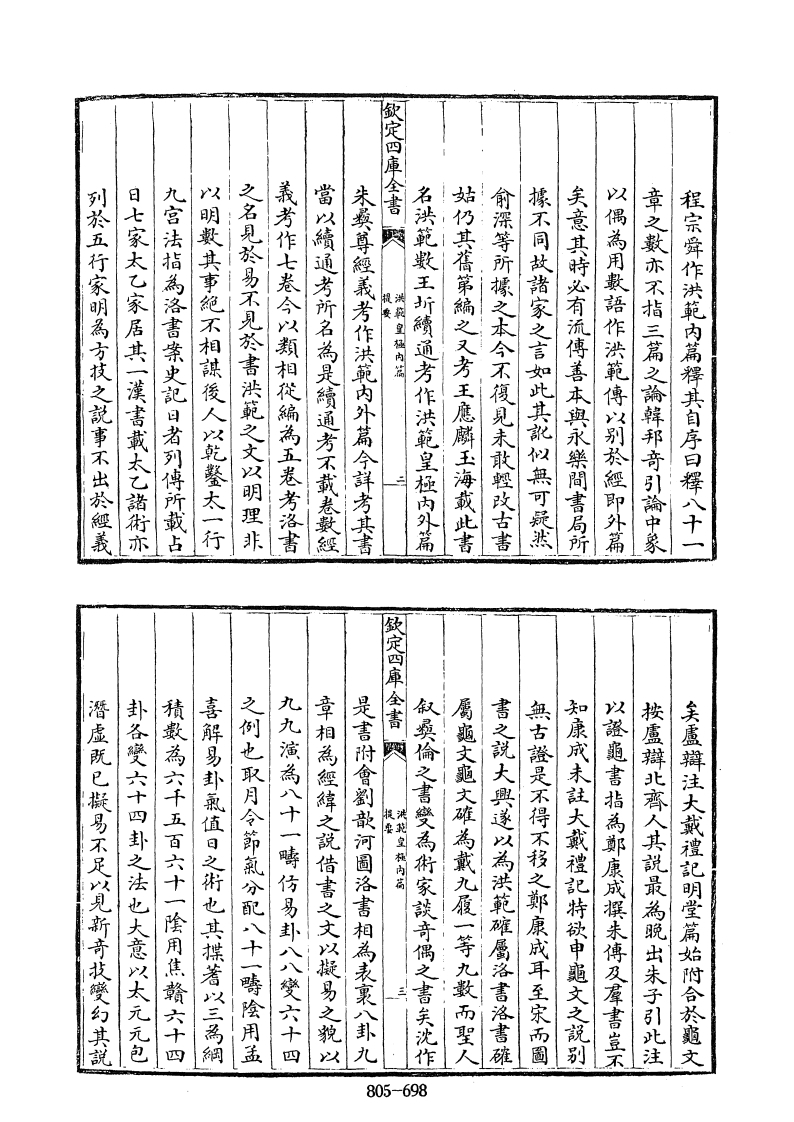 程宗舜作洪範內篇釋其自序曰釋八十一
章之數亦不指三篇之論韓邦竒引論中象
以偶為用數語作洪範傳以别於經即外篇
矣意其時必有流傳善本與永樂間書局所
據不同故諸家之言如此其訛似無可疑然
俞深等所據之本今不復見未敢輕改古書
姑仍其舊第編之又考王應麟玉海載此書
名洪範數王圻續通考作洪範皇極內外篇
欽定四庫全書
洪範皇極內篇
提要
二
朱彞尊經義考作洪範內外篇今詳考其書
當以續通考所名為是續通考不載卷數經
義考作七卷今以類相從編為五卷考洛書
之名見於易不見於書洪範之文以明理非
以明數其事絶不相謀後人以乾鑿太一行
九宫法指為洛書案史記日者列傳所載占
日七家太乙家居其一漢書載太乙諸術亦
列於五行家明為方技之説事不出於經義
矣盧辯注大戴禮記明堂篇始附合於龜文
按盧辯北齊人其說最為晚出朱子引此注
以證龜書指為鄭康成撰朱傳及羣書豈不
知康成未註大戴禮記特欲申龜文之說别
無古證是不得不移之鄭康成耳至宋而圖
書之説大興遂以為洪範確屬洛書洛書確
屬龜文龜文確為戴九履一等九數而聖人
叙彞倫之書變為術家談奇偶之書矣沈作
欽定四庫全書
洪範皇極內篇
提要
三
是書附會劉歆河圖洛書相為表裏八卦九
章相為經緯之説借書之文以擬易之貌以
九九演為八十一疇仿易卦八八變六十四
之例也取月令節氣分配八十一疇陰用孟
喜解易卦氣值日之術也其揲蓍以三為綱
積數為六千五百六十一陰用焦贛六十四
卦各變六十四卦之法也大意以太元元包
潛虛既已擬易不足以見新奇技變幻其説
805-698